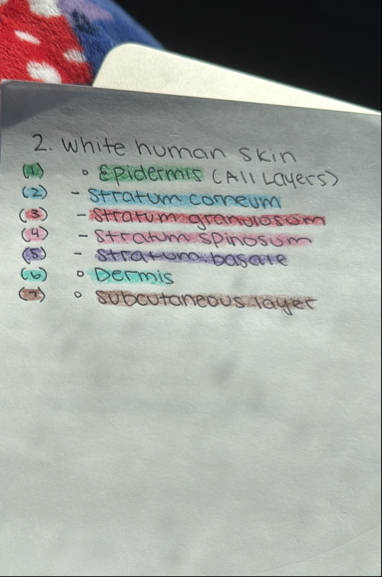 2. White human skin
(1) ◦ Epidermis (All Layers)
(2) - Stratum corneum
(3) - Stratum granulosum
(4) - Stratum spinosum
(5) - Stratum basale
(6) ◦ Dermis
(7) ◦ Subcutaneous layer